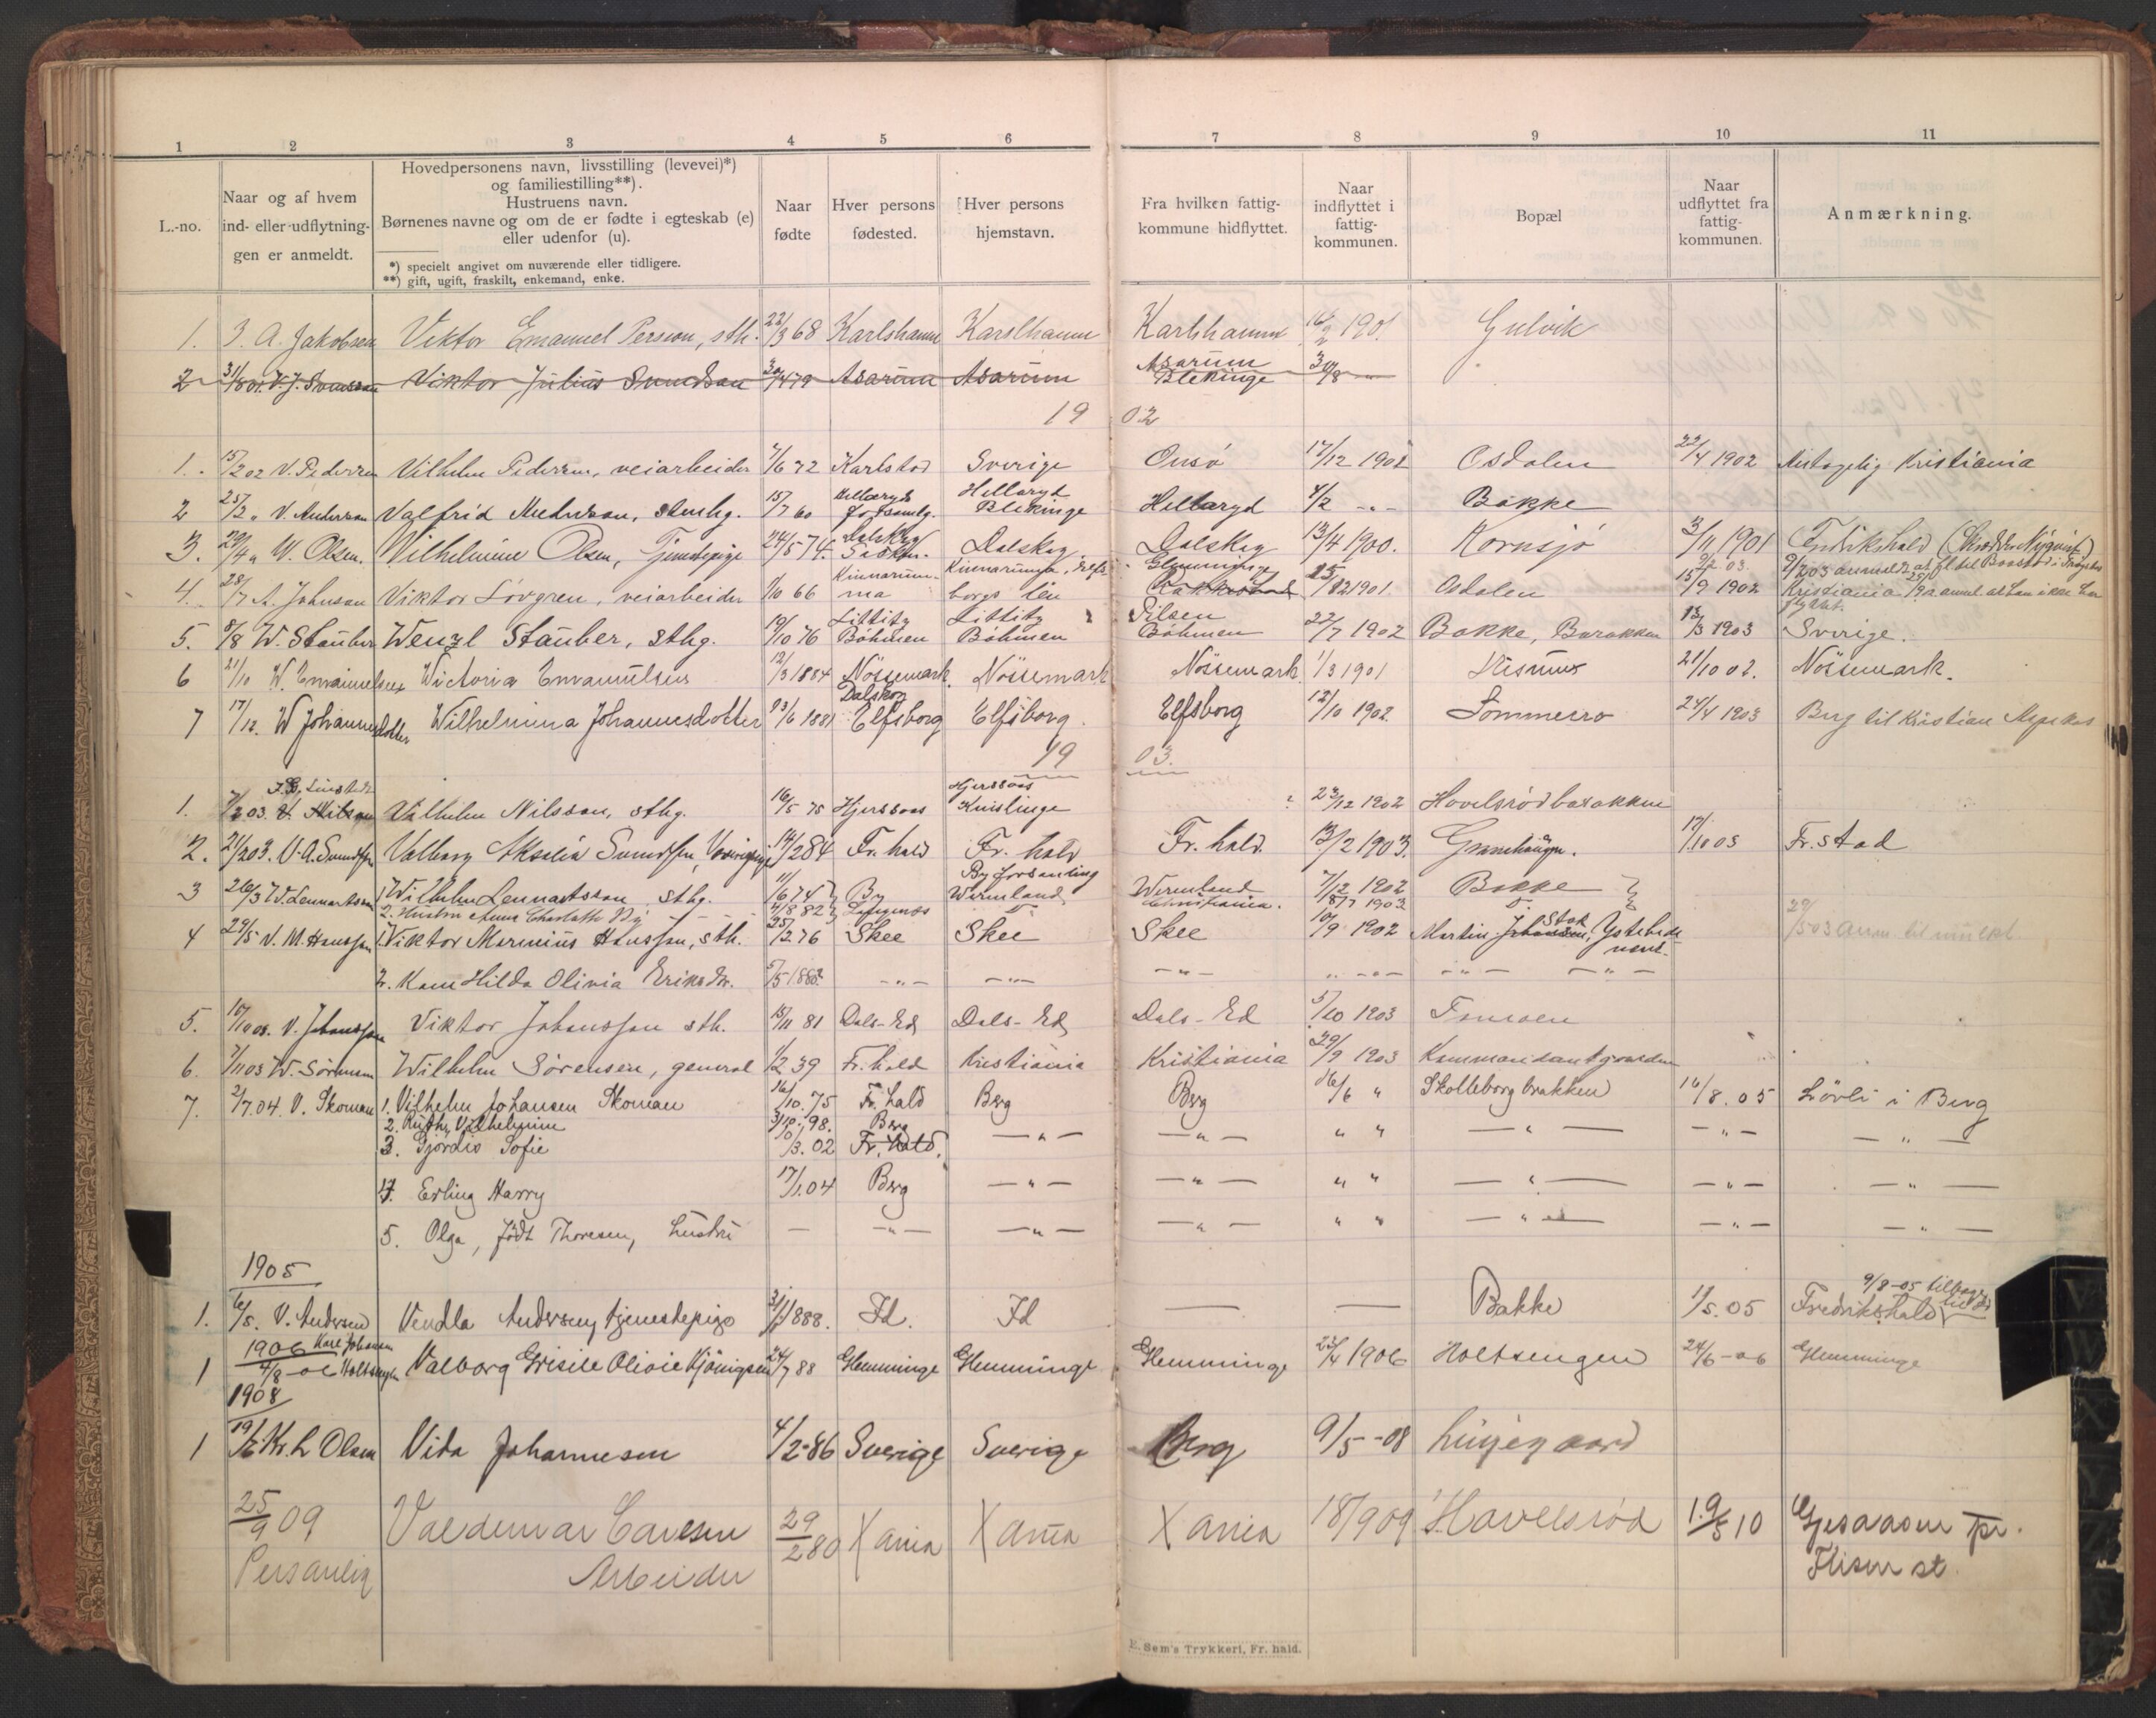 1 2 3 4 5 6 7 8 9 10 11
L.-no.
Naar og af hvem
ind- eller udflytnin-
gen er anmeldt.
Hovedpersonens navn, livsstilling (levevei)*)
og familiestilling**).
Hustruens navn.
Børnenes navne og om de er fødte i egteskab (e)
eller udenfor (u).
*) specielt angivet om nuværende eller tidligere.
**) gift, ugift, fraskilt, enkemand, enke.
Naar
fødte
Hver persons
fødested.
Hver persons
hjemstavn.
Fra hvilken fattig-
kommune hidflyttet.
Naar
indflyttet i
fattig-
kommunen.
Bopæl
Naar
udflyttet fra
fattig-
kommunen.
Anmærkning.
1. J. A. Jakobsen Viktor Emanuel Persson, sth. 22/3 68 Karlshamn Karslhamn Karlshamn 16/2 1901 Gulvik
2 31/8 01. V. J. Svensson Viktor Julius Svendsen 30/4 79 Asarum Asarum Asarum Blekinge 30/8 "
1902
1. 15/2 02 V. Pedersen Vilhelm Pedersen, veiarbeider 7/6 72 Karlstad Sverige Onsø 17/12 1901 Osdalen 22/4 1902 Antagelig Kristiania
2 25/2 " V. Andersson Valfrid Andersson, stenhg. 15/7 60 Hellaryds forsamlg. Hellaryd Blekinge Hellaryd 4/2 - " - Bakke
3. 29/4 " W. Olsen. Wilhelmine Olsen, Tjenestepige 24/5 74. Dalskog Dalskog Dalskog 13/4 1900. Kornsjø 3/11 1901 Fredrikshald
4. 28/7 A. Johnson Viktor Løvgren, veiarbeider 1/10 66 Kinnarumma Kinnarumma, Elfsborgs län Glemminge 1901 Osdalen 15/9 1902 Kristiania
5. 8/8 W. Stauber Wenzl Stauber, sthg. 19/10 76 Littitz Böhmen Littitz Böhmen Pilsen Böhmen 22/7 1902 Bakke, Barakken 13/3 1903 Sverige.
6 21/10 W. Emanuelsen Wictoria Emanuelsen 12/3 1884 Nössemark Nössemark Nössemark 1/3 1901 21/10 02. Nössemark.
7 17/12. W Johannesdotter Wilhelmina Johannesdotter 23/6 1881 Dalskog Elfsborg Elfsborg. Elfsborg 12/10 1902. Sommerro 24/4 1903 Berg til Kristian
1903.
1. 7/2 03. V. Nilsson Vilhelm Nilsson, sthg. 16/5 75 Hjerssaas Hjerssaas Knislinge ? 23/12 1902 Hovelsrødbarakken
2. 21/2 03. V. A. Svendsen Valborg Akselia Svendsen, 14/2 84 Fr. hald Fr. hald Fr. hald. 13/2 1903. 17/10 03 Fr. stad
3 26/3 W. Lennartsson 1. Wilhelm Lennartsson, sthg. 11/6 74 By By forsamling Wermland Wermland 7/12 1902 Bakke
2. Hustru Anna Charlotte 4/8 82 Kristiania. 1903
4 29/5 V. M. Hansson 1. Viktor Marinius Hansson, sth. 25/2 76 Skee Skee Skee 10/9 1902 Martin Johansen, Stok Ystehede 29/5 03 anm. til mulkt.
2. Kone Hilda Olivia Eriksdr. 5/5 1880. - " - - " - - " - - " - - " -
5. 10/10 03. V. Johansson Viktor Johansson sth. 15/11 81 Dals-Ed Dals-Ed Dals-Ed 5/10 1903
6. 7/11 03 W. Sörensen Wilhelm Sørensen, general 1/2 39 Fr. hald Kristiania Kristiania 29/9 1903 Kommandantgaarden
7. 2/7.04. V. Skoman 1. Vilhelm Johansen Skoman 16/10.75 Fr. hald Berg Berg 16/6 " Skolleborg brakken 16/8.05 Lövli i Berg
2. Ruth Vilhelmine 98. Berg
3. Hjørdis Sofie 3.02 Fr. hald. - " - - " - " " - " - - " - - " -
4. Erling Harry 17/1.04 Berg - " - - " - " " - " - - " - - " -
5. Olga, født Thoresen, hustru - - " - - " - - " - " " - " - - " - - " -
1905
1. 6/5. V. Andersen Vendla Andersen, tjenestepige 1888. Id. Id Bakke 1/5.05 Fredrikshald 9/8-05 tilbage til Id
1906 Karl Johansen
1 4/8-06 Holtsengen Valborg Grisile Olivie Kjönigsen 24/7 88 Glemminge Glemminge Glemminge 23/4 1906 Holtsengen 24/6-06 Glemminge
1908
1 19/6 Kr. L Olsen Vida Johannesen 4/2-86 Sverige Sverige Berg 9/5-08
25/9 09 Valdemar Carlsen 29/2 80 Xania Xania Xania 18/9 09 Havelsrød 19/5 10 Gjesaasen pr.
Personlig Arbeider Flisen st.
E. Sem's Trykkeri, Fr. hald.